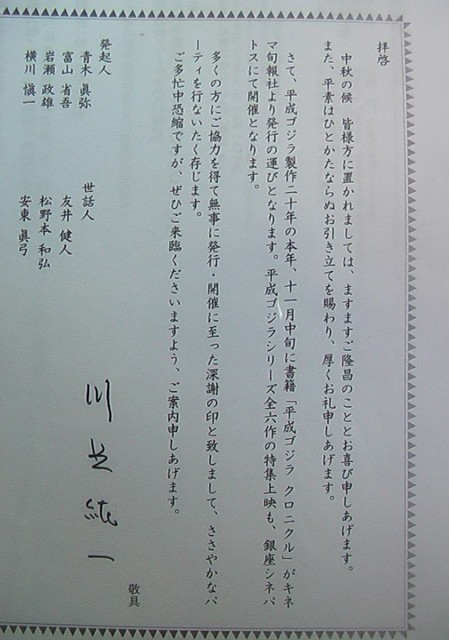 拝啓
中秋の候　皆様方に置かれましては、ますますご隆昌のこととお喜び申しあげます。
また、平素はひとかたならぬお引き立てを賜わり、厚くお礼申しあげます。
さて、平成ゴジラ製作二十年の本年、十一月中旬に書籍「平成ゴジラ クロニクル」がキネ
マ旬報社より発行の運びとなります。平成ゴジラシリーズ全六作の特集上映も、銀座シネパ
トスにて開催となります。
多くの方にご協力を得て無事に発行・開催に至った深謝の印と致しまして、ささやかなパ
ーティを行ないたく存じます。
ご多忙中恐縮ですが、ぜひご来臨くださいますよう、ご案内申しあげます。
敬具
川北紘一
発起人
青木 眞弥
富山 省吾
岩瀬 政雄
横川 愼一
世話人
友井 健人
松野本 和弘
安東 眞弓